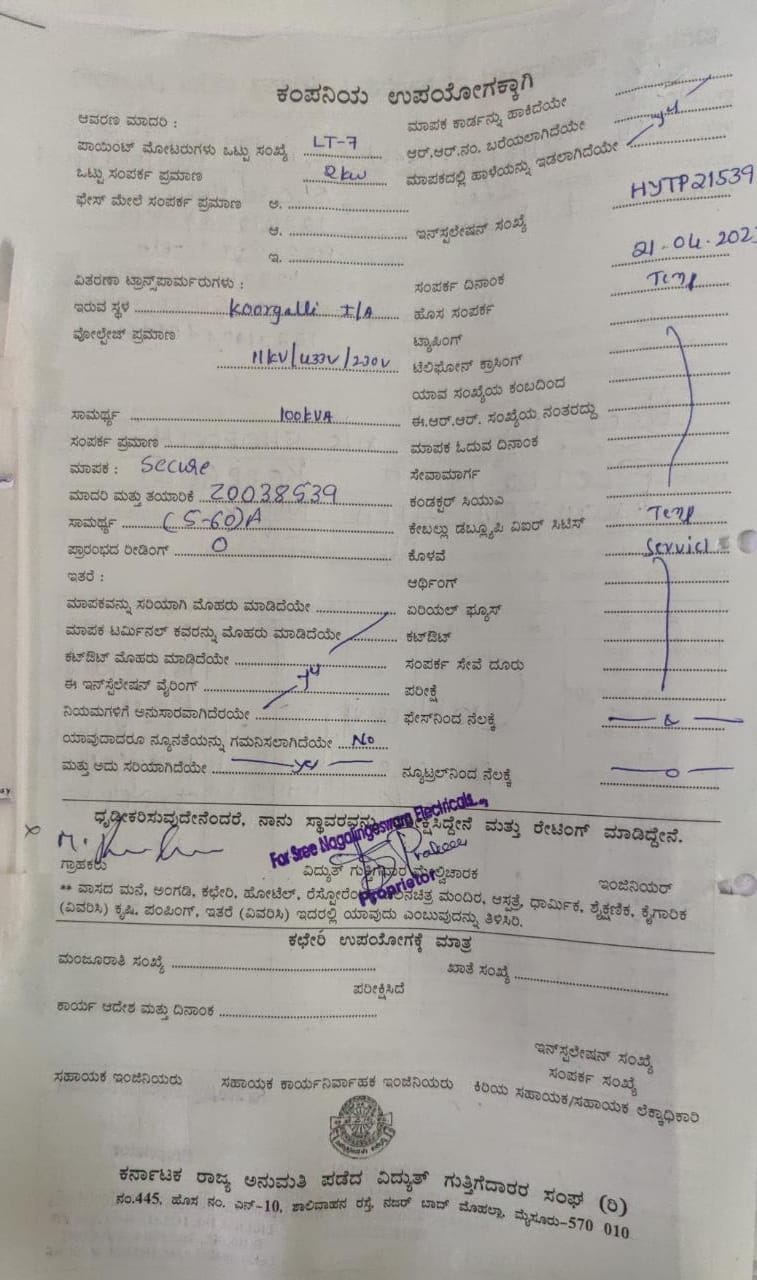 ಕಂಪನಿಯ ಉಪಯೋಗಕ್ಕಾಗಿ
ಆವರಣ ಮಾದರಿ :
ಪಾಯಿಂಟ್ ಮೋಟರುಗಳು ಒಟ್ಟು ಸಂಖ್ಯೆ LT-7
ಒಟ್ಟು ಸಂಪರ್ಕ ಪ್ರಮಾಣ 2kw
ಫೇಸ್ ಮೇಲೆ ಸಂಪರ್ಕ ಪ್ರಮಾಣ ಅ.
ಆ.
ಇ.
ವಿತರಣಾ ಟ್ರಾನ್ಸ್‌ಫಾರ್ಮರುಗಳು :
ಇರುವ ಸ್ಥಳ Koorgalli I/A
ವೋಲ್ಟೇಜ್ ಪ್ರಮಾಣ
11kV/433V/230V
ಸಾಮರ್ಥ್ಯ 100kVA
ಸಂಪರ್ಕ ಪ್ರಮಾಣ
ಮಾಪಕ : Secure
ಮಾದರಿ ಮತ್ತು ತಯಾರಿಕೆ 20038539
ಸಾಮರ್ಥ್ಯ (5-60)A
ಪ್ರಾರಂಭದ ರೀಡಿಂಗ್ 0
ಇತರೆ :
ಮಾಪಕವನ್ನು ಸರಿಯಾಗಿ ಮೊಹರು ಮಾಡಿದೆಯೇ
ಮಾಪಕ ಟರ್ಮಿನಲ್ ಕವರನ್ನು ಮೊಹರು ಮಾಡಿದೆಯೇ
ಕಟ್‌ಔಟ್ ಮೊಹರು ಮಾಡಿದೆಯೇ
ಈ ಇನ್‌ಸ್ಟಲೇಷನ್ ವೈರಿಂಗ್
ನಿಯಮಗಳಿಗೆ ಅನುಸಾರವಾಗಿದೆರಯೇ
ಯಾವುದಾದರೂ ನ್ಯೂನತೆಯನ್ನು ಗಮನಿಸಲಾಗಿದೆಯೇ No
ಮತ್ತು ಅದು ಸರಿಯಾಗಿದೆಯೇ
ಮಾಪಕ ಕಾರ್ಡನ್ನು ಹಾಕಿದೆಯೇ
ಆರ್.ಆರ್.ನಂ. ಬರೆಯಲಾಗಿದೆಯೇ
ಮಾಪಕದಲ್ಲಿ ಹಾಳೆಯನ್ನು ಇಡಲಾಗಿದೆಯೇ
HYTP21539
ಇನ್‌ಸ್ಟಲೇಷನ್ ಸಂಖ್ಯೆ
21-04-202
ಸಂಪರ್ಕ ದಿನಾಂಕ Temp
ಹೊಸ ಸಂಪರ್ಕ
ಟ್ಯಾಪಿಂಗ್
ಟೆಲಿಫೋನ್ ಕ್ರಾಸಿಂಗ್
ಯಾವ ಸಂಖ್ಯೆಯ ಕಂಬದಿಂದ
ಈ.ಆರ್.ಆರ್. ಸಂಖ್ಯೆಯ ನಂತರದ್ದು
ಮಾಪಕ ಓದುವ ದಿನಾಂಕ
ಸೇವಾಮಾರ್ಗ
ಕಂಡಕ್ಟರ್ ಸಿಯುಎ
ಕೇಬಲ್ಲು ಡಬ್ಲ್ಯೂಪಿ ವಿಐಆರ್ ಸಿಟಿಸ್ Temp
ಕೊಳವೆ Service
ಆರ್ಥಿಂಗ್
ಏರಿಯಲ್ ಫ್ಯೂಸ್
ಕಟ್‌ಔಟ್
ಸಂಪರ್ಕ ಸೇವೆ ದೂರು
ಪರೀಕ್ಷೆ
ಫೇಸ್‌ನಿಂದ ನೆಲಕ್ಕೆ
ನ್ಯೂಟ್ರಲ್‌ನಿಂದ ನೆಲಕ್ಕೆ
ಧೃಢೀಕರಿಸುವುದೇನೆಂದರೆ, ನಾನು ಸ್ಥಾವರವನ್ನು ಮತ್ತು ರೇಟಿಂಗ್ ಮಾಡಿದ್ದೇನೆ.
For Sree Nagalingeswara Electricals
Proprietor
ಗ್ರಾಹಕರು ವಿದ್ಯುತ್ ಗುತ್ತಿಗೆದಾರ ಮೇಲ್ವಿಚಾರಕ ಇಂಜಿನಿಯರ್
** ವಾಸದ ಮನೆ, ಅಂಗಡಿ, ಕಛೇರಿ, ಹೋಟೆಲ್, ಮಂದಿರ, ಆಸ್ಪತ್ರೆ, ಧಾರ್ಮಿಕ, ಶೈಕ್ಷಣಿಕ, ಕೈಗಾರಿಕ
(ವಿವರಿಸಿ) ಕೃಷಿ, ಪಂಪಿಂಗ್, ಇತರೆ (ವಿವರಿಸಿ) ಇದರಲ್ಲಿ ಯಾವುದು ಎಂಬುವುದನ್ನು ತಿಳಿಸಿರಿ.
ಕಛೇರಿ ಉಪಯೋಗಕ್ಕೆ ಮಾತ್ರ
ಮಂಜೂರಾತಿ ಸಂಖ್ಯೆ ಖಾತೆ ಸಂಖ್ಯೆ
ಪರೀಕ್ಷಿಸಿದೆ
ಕಾರ್ಯ ಆದೇಶ ಮತ್ತು ದಿನಾಂಕ
ಇನ್‌ಸ್ಟಲೇಷನ್ ಸಂಖ್ಯೆ
ಸಂಪರ್ಕ ಸಂಖ್ಯೆ
ಸಹಾಯಕ ಇಂಜಿನಿಯರು ಸಹಾಯಕ ಕಾರ್ಯನಿರ್ವಾಹಕ ಇಂಜಿನಿಯರು ಕಿರಿಯ ಸಹಾಯಕ/ಸಹಾಯಕ ಲೆಕ್ಕಾಧಿಕಾರಿ
ಕರ್ನಾಟಕ ರಾಜ್ಯ ಅನುಮತಿ ಪಡೆದ ವಿದ್ಯುತ್ ಗುತ್ತಿಗೆದಾರರ ಸಂಘ (ರಿ)
ನಂ.445, ಹೊಸ ನಂ. ಎನ್-10, ಶಾಲಿವಾಹನ ರಸ್ತೆ, ನಜರ್ ಬಾದ್ ಮೊಹಲ್ಲಾ, ಮೈಸೂರು-570 010